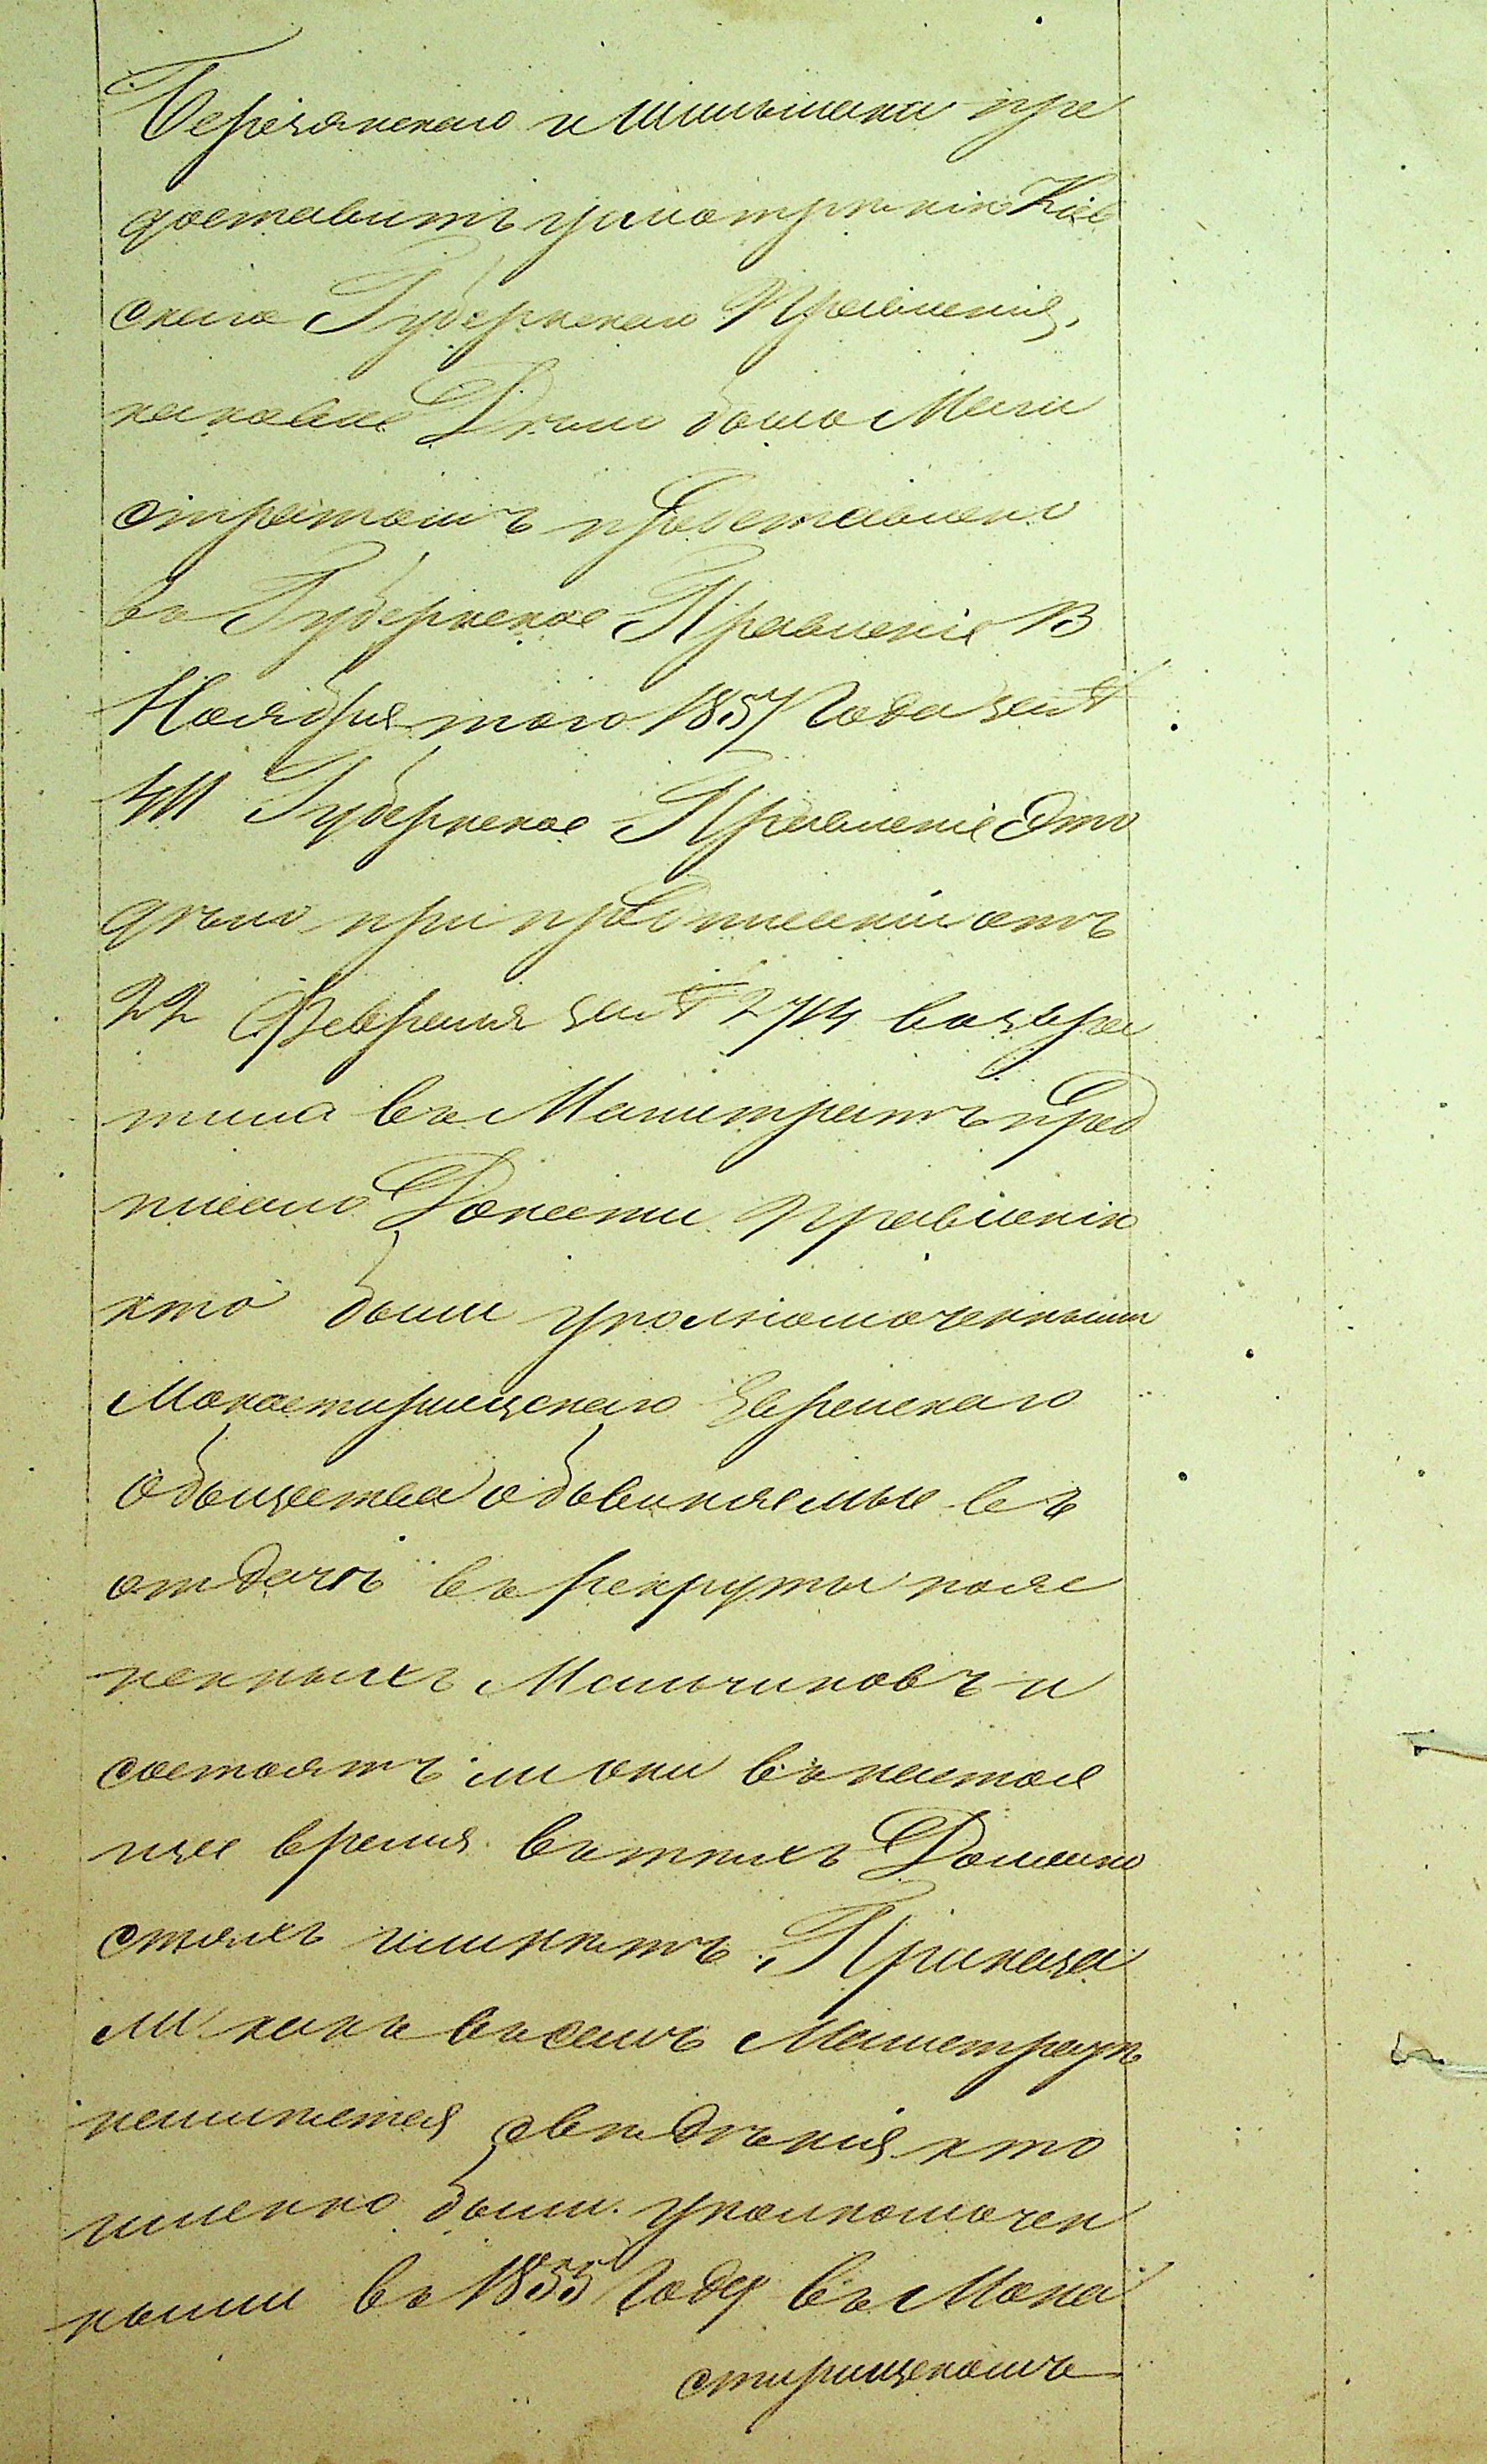 Березанскаго и Шпильмана пре
доставить усмотренію Кiев
скаго Губернскаго Правленія,
каковое Дѣло было Маги
стратомъ представлено
въ Губернское Правленіе 13
Ноября того 1857 года за №
411 Губернское Правленіе Это
дѣло при предписаніи отъ
22 Февраля за № 2714 возвра
тило въ Магистратъ пред
писало Донести Правленію
кто были уполномоченными
Монастирищскаго Еврейскаго
Общества обвиняемые въ
отдачѣ въ рекруты пояс
ненныхъ Мальчиковъ и
состоятъ ли они въ настоя
щее время въ тѣхъ Должно
стяхъ или нѣтъ. Приказа
ли какъ въ семъ Магистратѣ
неимѣется свѣдѣнія кто
именно были уполномочен
ными въ 1855 году въ Мона
стирищскомъ